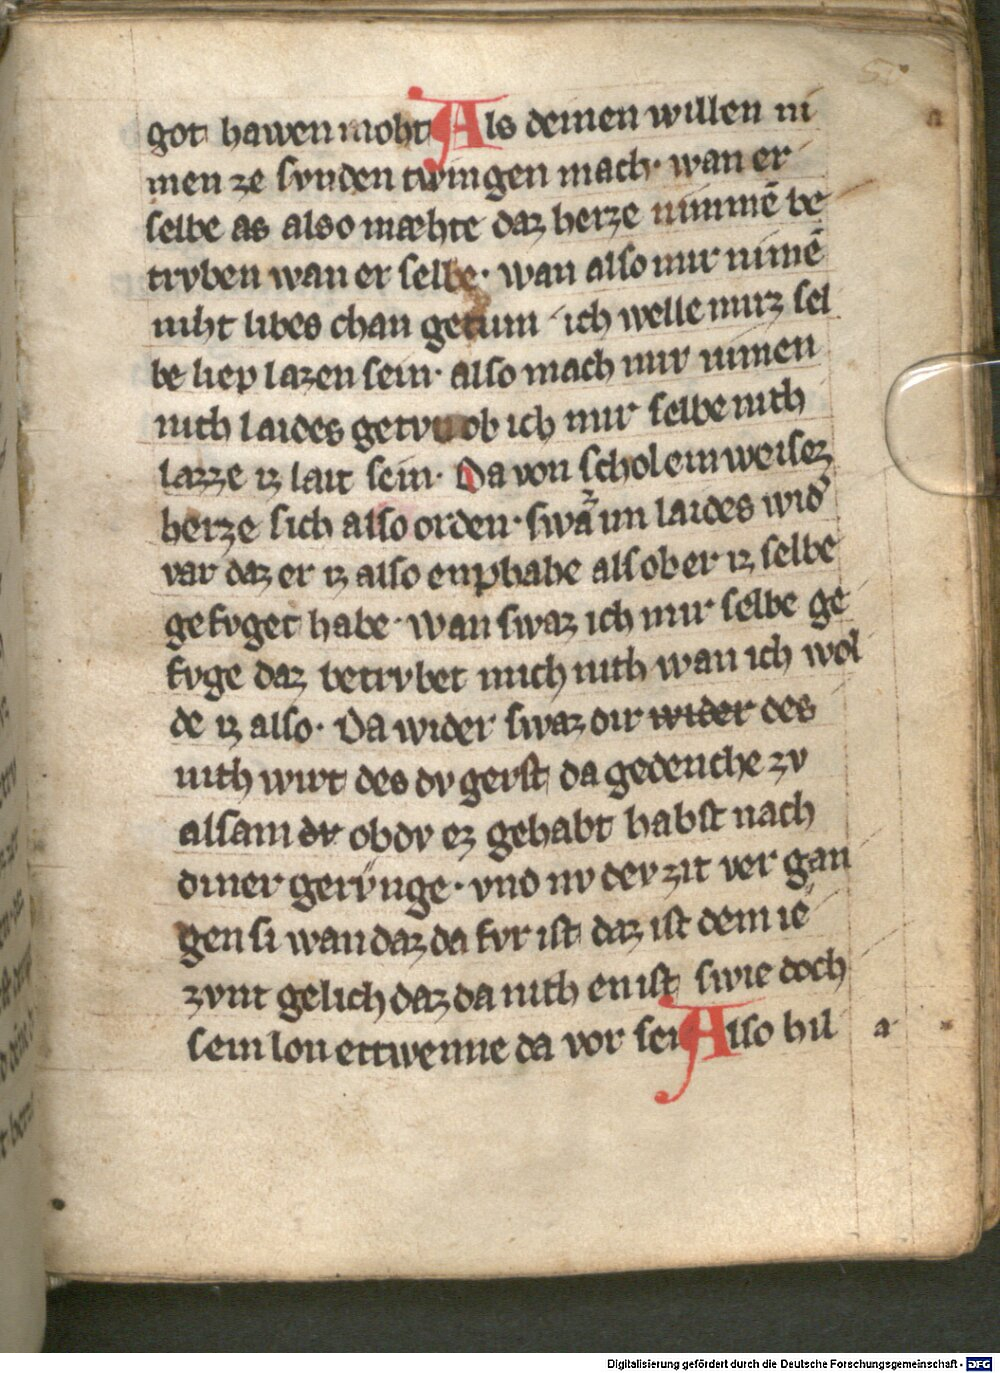 got hawen moht Als deinen willen ni
men ze svnden twingen mach· wan er
selbe as also mæhte daz herze nimmē be
trvben wan er selbe· wan also mir nimē
niht libes chan getuen ich welle mirz sel
be liep lazen sein· also mach mir nimen
nith laides getvn ob ich mir selbe nith
lazze iz lait sein· Da von schol ein weisez
herze sich also orden· swaz im laides wid'
var daz er iz also enphahe als ob er iz selbe
gefvget habe· wan swaz ich mir selbe ge
fvge daz betrvbet mich nith wan ich wol
de iz also· Da wider swaz dir wider des
nith wirt des dv gerst da gedenche zv
alsam dv ob dv ez gehabt habst nach
diner gervnge· vnd nv dev zit ver gan
gen si wan daz da fvr ist daz ist dem ie
zvnt gelich daz da nith en ist swie doch
sein lon ettwenne da vor sei Also hil
a
a